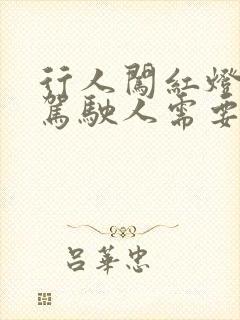 行人闖紅燈
駕駛人需要
呂華忠